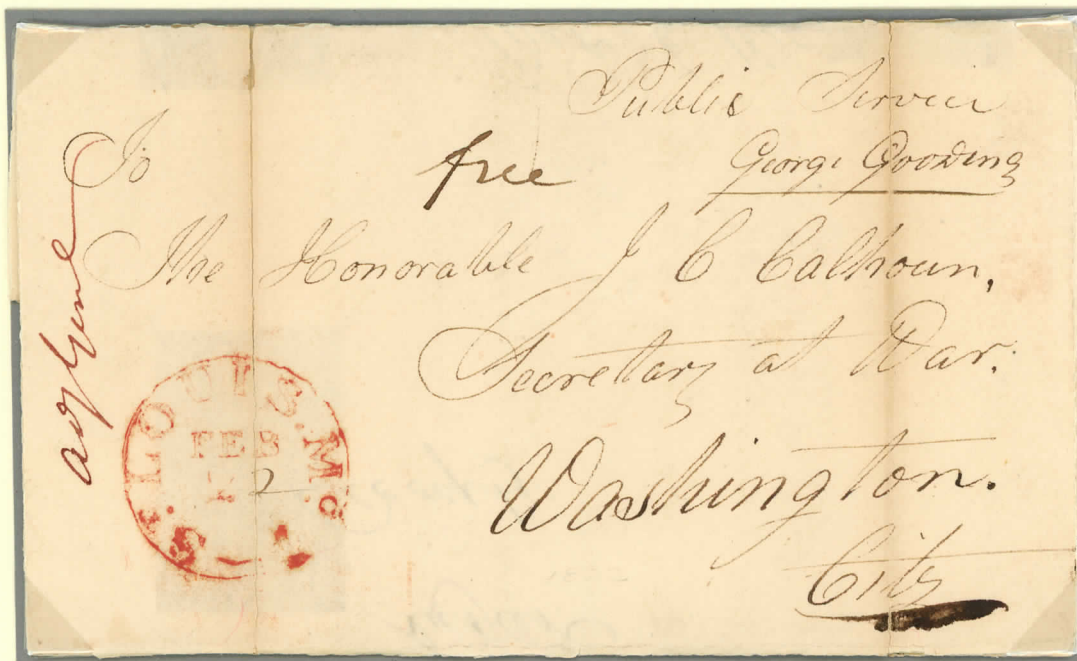 Public Service
George Gooding
To
free
The Honorable J C Calhoun,
Secretary at War.
Washington.
City
Adj Genl
St. LOUIS. Mo
FEB
2